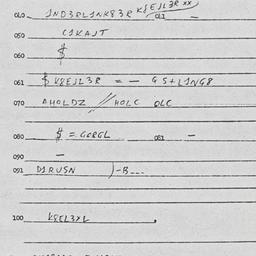 010 1ND3RL1NK83R K8EJL3R XX 011 —
050 C1KAJT
060 $
061 $ K8EJL3R = — G5+L1NG8
070 AHOLDZ // HOLC OLC
080 $ = GORGL 081 —
090 —
091 D1RUSN )-B---
100 K8EL3XL .